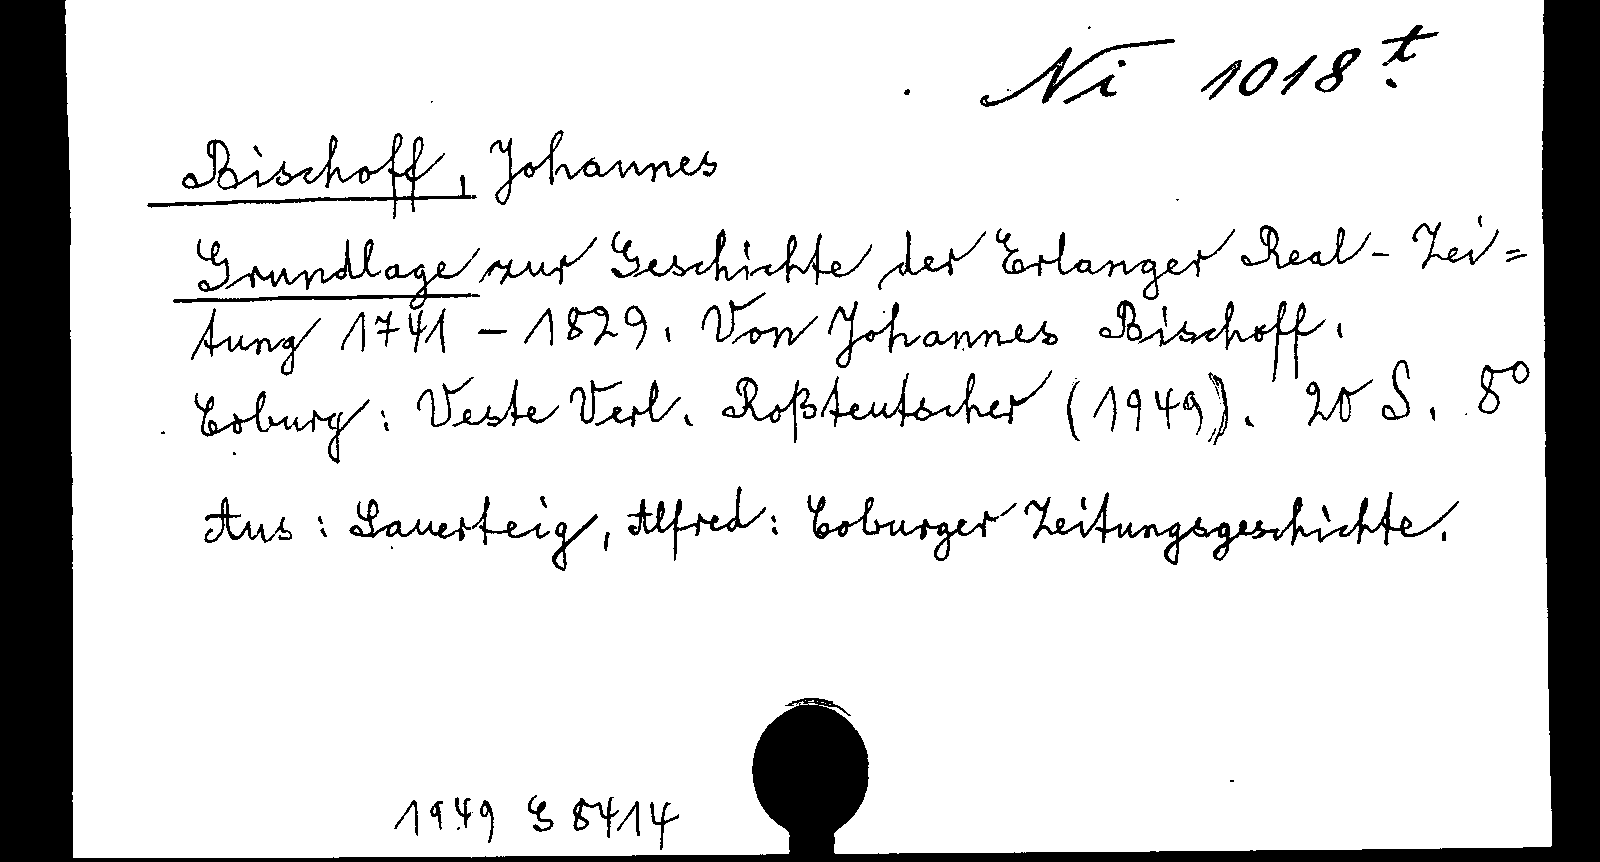 Ni 1018 t.
Bischoff, Johannes
Grundlage zur Geschichte der Erlanger Real-Zei=
tung 1741 – 1829. Von Johannes Bischoff.
Coburg: Veste Verl. Roßteutscher (1949). 20 S. 8°
Aus: Sauerteig, Alfred: Coburger Zeitungsgeschichte.
1949 G 8414